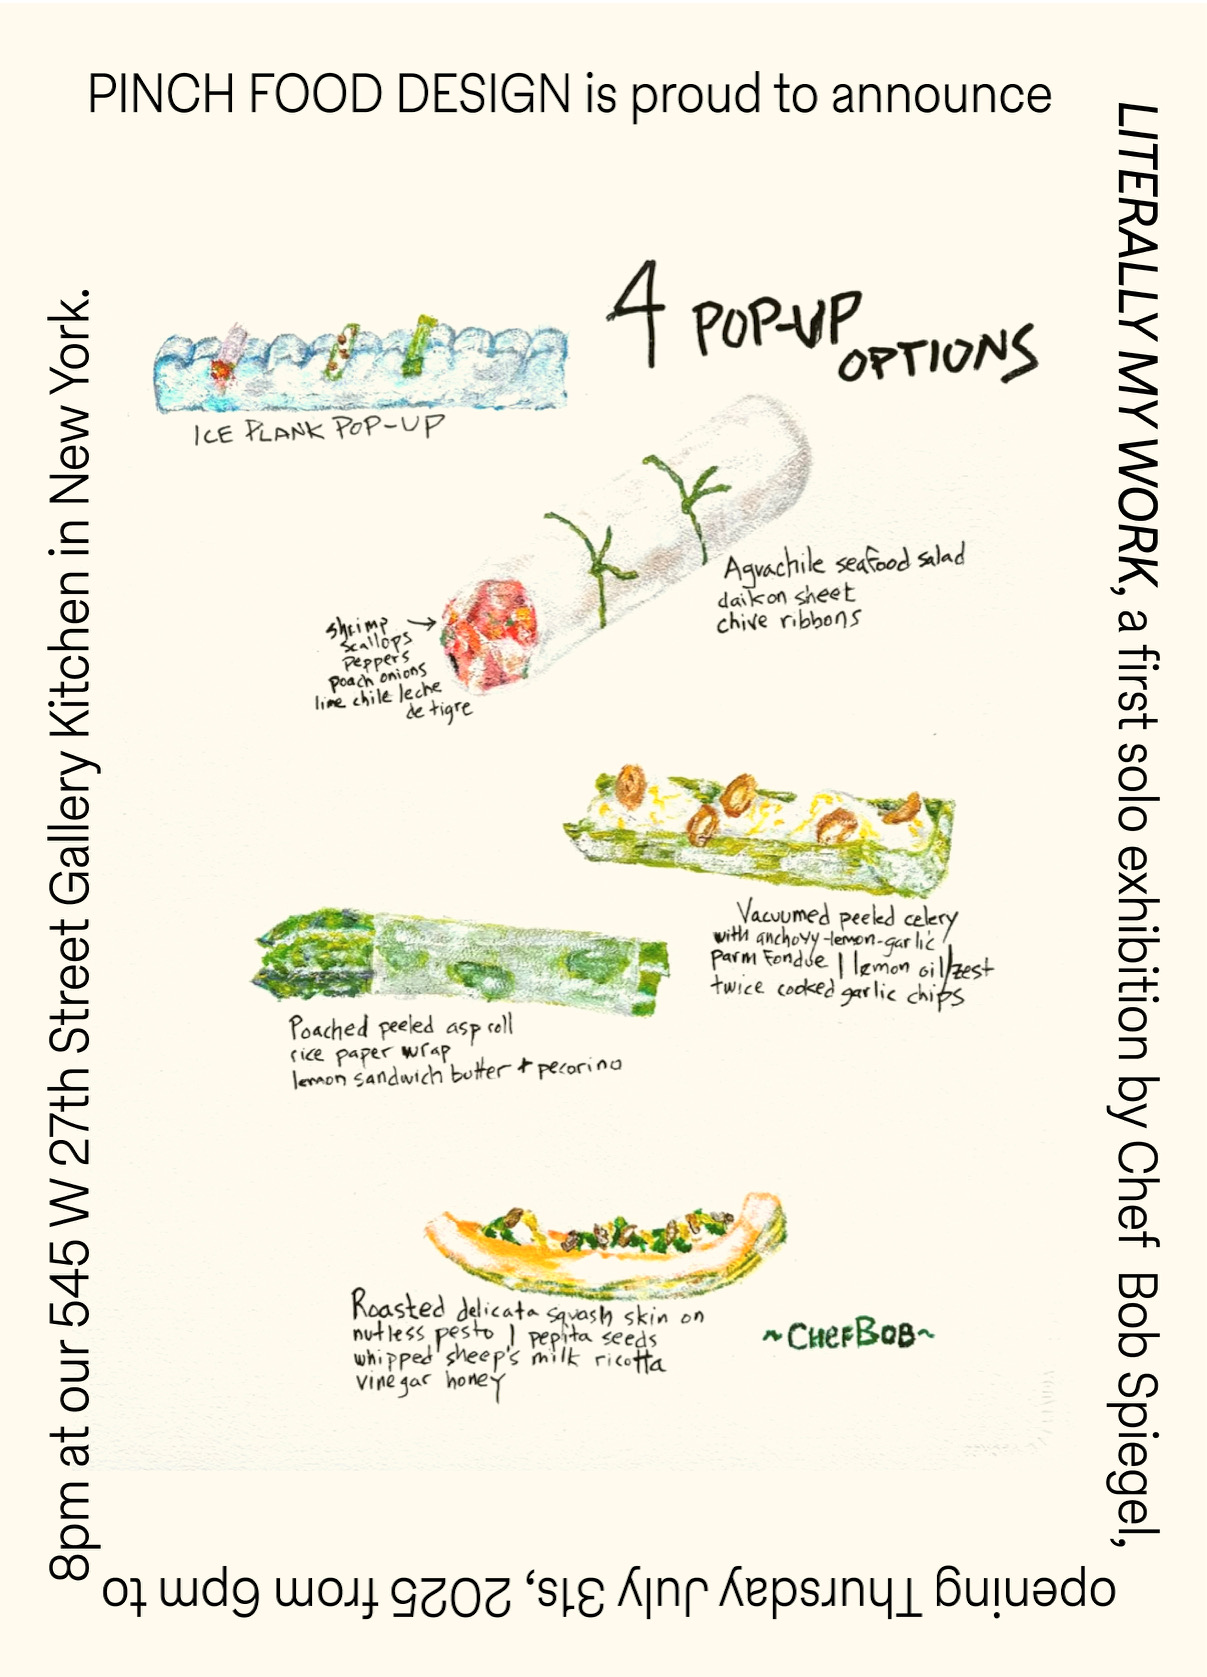 PINCH FOOD DESIGN is proud to announce
LITERALLY MY WORK, a first solo exhibition by Chef Bob Spiegel,
opening Thursday July 31s, 2025 from 6pm to
8pm at our 545 W 27th Street Gallery Kitchen in New York.
4 POP-UP
OPTIONS
ICE PLANK POP-UP
Aguachile seafood salad
daikon sheet
chive ribbons
shrimp
scallops
peppers
poach onions
lime chile leche
de tigre
Vacuumed peeled celery
with anchovy-lemon-garlic
parm fondue | lemon oil/zest
twice cooked garlic chips
Poached peeled asp roll
rice paper wrap
lemon sandwich butter + pecorino
Roasted delicata squash skin on
nutless pesto | pepita seeds
whipped sheep's milk ricotta
vinegar honey
~CHEFBOB~